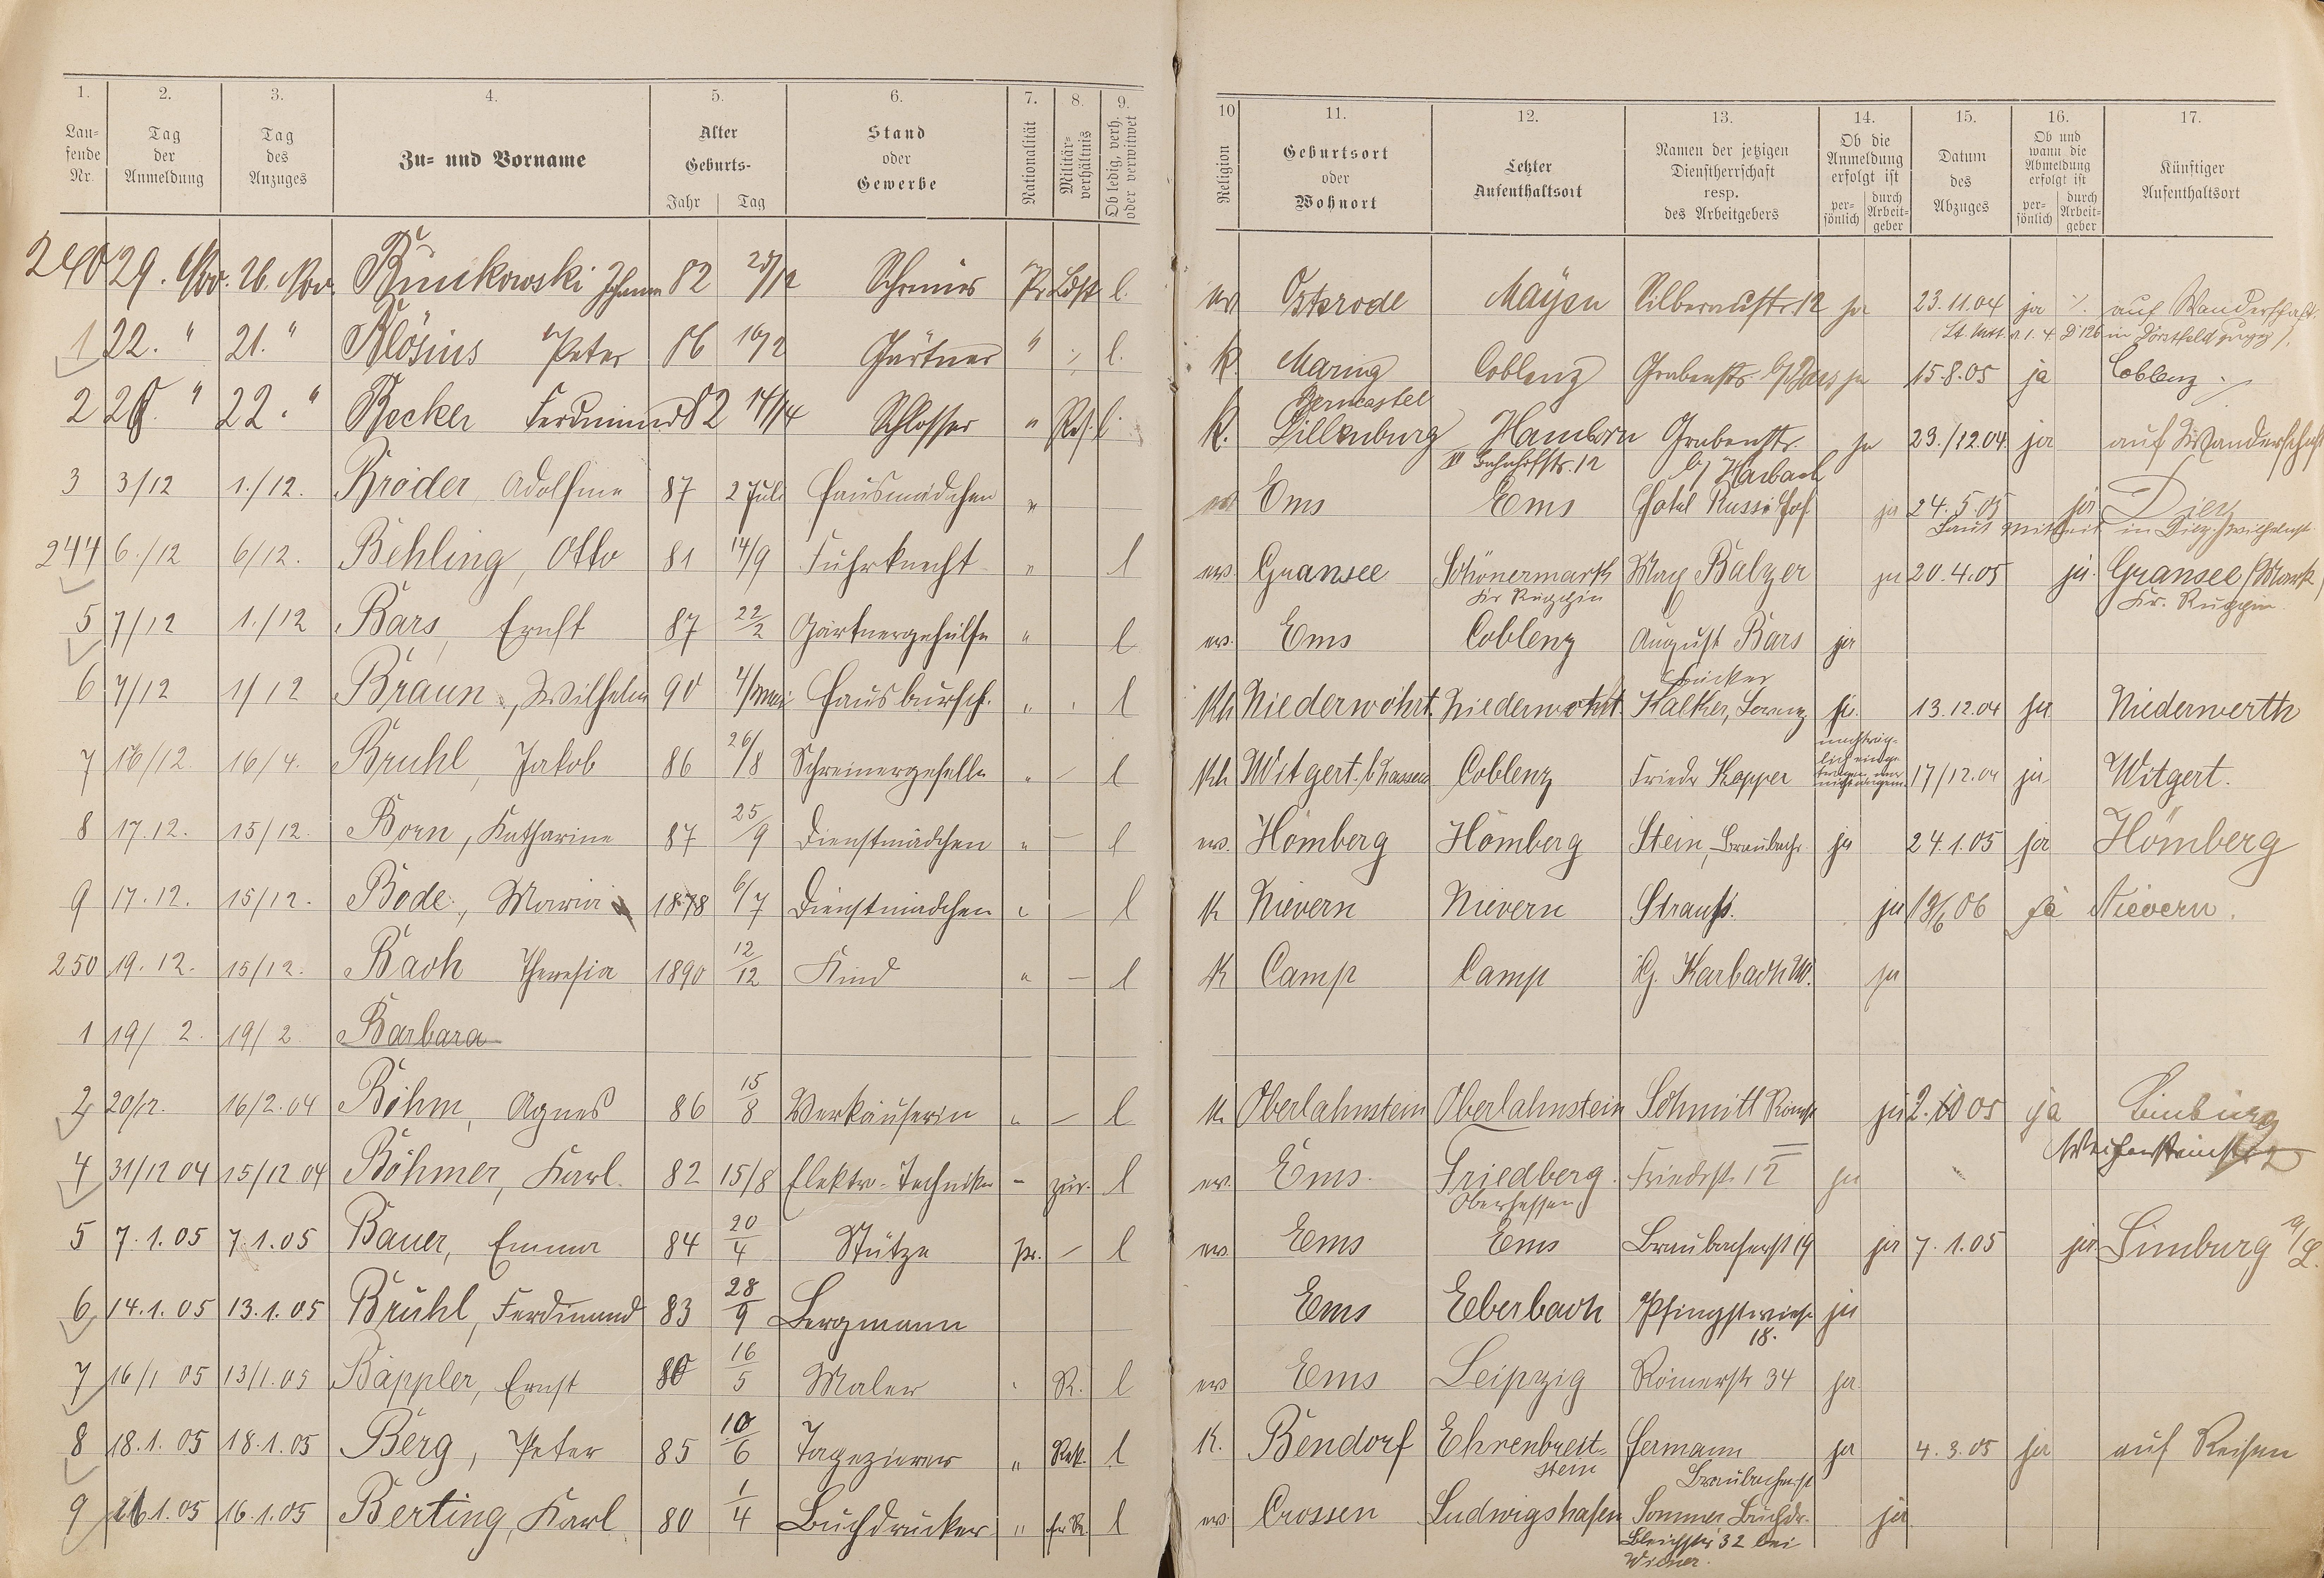 1. 2. 3. 4. 5. 6. 7. 8. 9. 10 11. 12. 13. 14. 15. 16. 17.
Lau-
fende
Nr.
Tag
der
Anmeldung
Tag
des
Anzuges
Zu- und Vorname
Alter
Geburts-
Jahr Tag
Stand
oder
Gewerbe
Nationalität
Militär-
verhältnis
Ob ledig, verh.
oder verwitwet
Religion
Geburtsort
oder
Wohnort
Letzter
Aufenthaltsort
Namen der jetzigen
Dienstherrschaft
resp.
des Arbeitgebers
Ob die
Anmeldung
erfolgt ist
per-
sönlich
durch
Arbeit-
geber
Datum
des
Abzuges
Ob und
wann die
Abmeldung
erfolgt ist
per-
sönlich
durch
Arbeit-
geber
Künftiger
Aufenthaltsort
240 29. Nov. 26. Nov. Johann 82 Pr. l. ev Osterode Mayen Silberaustr. 12 ja 23.11.04 ja auf Wanderschaft.
1 22. " 21. " Blösius Peter 86 Gärtner " l. k. Maring Coblenz Grabenstr. ja 15.8.05 ja Coblenz
Berncastel
2 " 22. " Becker Ferdinand 82 Schlosser " Res. l. k. Dillenburg Hamborn Grabenstr. ja 23./12.04. ja auf Wanderschaft
Bahnhofstr. 12 b/ Harbach
3 3/12 1./12. Bröder Adolfine 87 2 Juli Hausmädchen " ev. Ems Ems Hotel Russ. Hof ja 24.5.05 ja Diez
244 6./12 6/12. Behling, Otto 81 14/9 Fuhrknecht " l ev. Gransee Schönermark Max Balzer ja 20.4.05 ja. Gransee/Mark
Kr Ruppin Kr. Ruppin
5 7/12 1./12 Bärs, Ernst 87 22/2 Gärtnergehülfe " l ev. Ems Coblenz August Bärs ja
6 7/12 1/12 Braun, Wilhelm 90 4/Mai Hausbursch. " l kh Niederwöhrt. Niederwöhrt. Kalker, Lorenz ja. 13.12.04 ja Niederwerth
7 16/12. 16/4. Brühl, Jakob 86 26/8 Schreinergeselle " – l kh Witgert /b Nassau Coblenz Friedr Kopper 17/12.04 ja Witgert.
8 17.12. 15/12. Born, Katharine 87 25/9 Dienstmädchen " – l ev. Hömberg Hömberg Stein, Braubach. ja 24.1.05 ja Hömberg
9 17.12. 15/12. Bode, Maria 1878 6/7 Dienstmädchen " – l K Nievern Nievern Strauß. ja 19/6 06 ja Nievern.
250 19.12. 15/12. Bach Theresia 1890 12/12 Kind " – l K Camp Camp G. Karbach W. ja
1 19/2. 19/2 Barbara
2 20/12. 16/2.04 Böhm, Agnes 86 15/8 Verkäuferin " – l K. Oberlahnstein Oberlahnstein Schmitt Römerstr ja 2. 05 ja Limburg
4 31/12 04 15/12 04 Böhmer, Karl. 82 15/8 Elektro-Techniker – zur. l ev. Ems. Friedberg. Friedrstr. 12 ja
Oberhessen
5 7.1.05 7.1.05 Bauer, Emma 84 20/4 Stütze pr. – l ev. Ems Ems Braubacherst 19 ja 7.1.05 ja Limburg a/L.
6 14.1.05 13.1.05 Brühl, Ferdinand 83 28/9 Bergmann Ems Eberbach Pfingstwiese ja
18.
7 16/1 05 13/1.05 Bäppler, Ernst 80 16/5 Maler R. l ev Ems Leipzig Römerstr 34 ja
8 18.1.05 18.1.05 Berg, Peter 85 10/6 Tapezierer " l K. Bendorf Ehrenbreit- Hermann ja 4.3.05 ja auf Reisen
stein Braubacherst
9 1.05 16.1.05 Berting, Karl 80 1/4 Buchdrucker " l ev Crossen Ludwigshafen Sommer Buchdr. ja
Bleichstr 32 bei
Wiener.